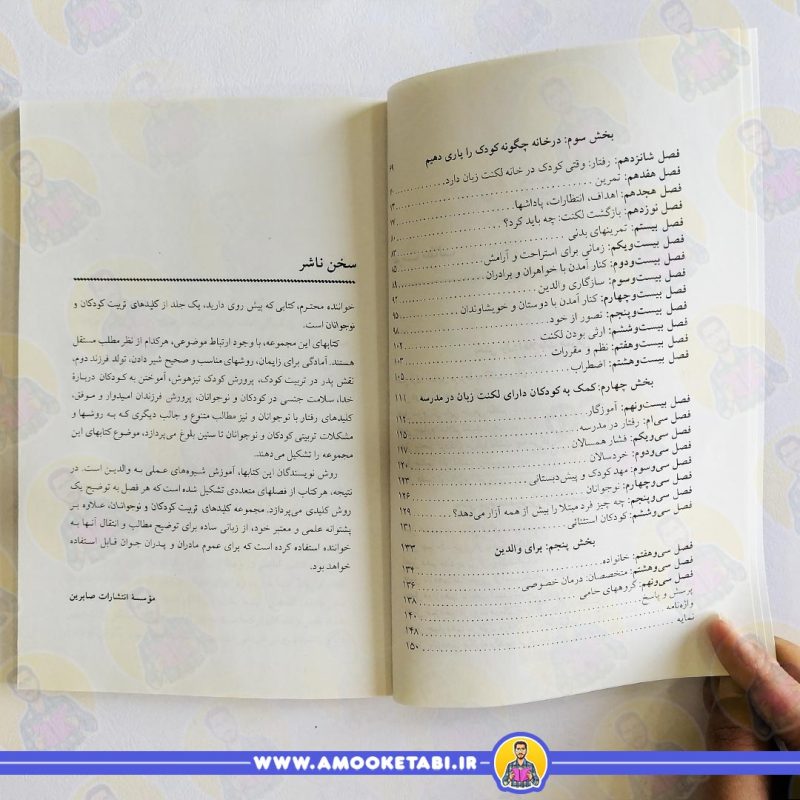 بخش سوم: در خانه چگونه کودک را یاری دهیم
فصل شانزدهم: رفتار: وقتی کودک در خانه لکنت زبان دارد
فصل هفدهم: تمرین
فصل هجدهم: اهداف، انتظارات، پاداشها
فصل نوزدهم: بازگشت لکنت: چه باید کرد؟
فصل بیستم: تمرینهای بدنی
فصل بیست‌ویکم: زمانی برای استراحت و آرامش
فصل بیست‌ودوم: کنار آمدن با خواهران و برادران
فصل بیست‌وسوم: سازگاری والدین
فصل بیست‌وچهارم: کنار آمدن با دوستان و خویشاوندان
فصل بیست‌وپنجم: تصور از خود
فصل بیست‌وششم: ارثی بودن لکنت ۱۰۲
فصل بیست‌وهفتم: نظم و مقررات ۱۰۳
فصل بیست‌وهشتم: اضطراب ۱۰۵
بخش چهارم: کمک به کودکان دارای لکنت زبان در مدرسه ۱۱۱
فصل بیست‌ونهم: آموزگار ۱۱۲
فصل سی‌ام: رفتار در مدرسه
فصل سی‌ویکم: فشار همسالان ۱۱۷
فصل سی‌ودوم: خردسالان ۱۲۰
فصل سی‌وسوم: مهد کودک و پیش‌دبستانی ۱۲۳
فصل سی‌وچهارم: نوجوانان ۱۲۶
فصل سی‌وپنجم: چه چیز فرد مبتلا را بیش از همه آزار می‌دهد؟ ۱۲۹
فصل سی‌وششم: کودکان استثنائی ۱۳۱
بخش پنجم: برای والدین ۱۳۳
فصل سی‌وهفتم: خانواده ۱۳۴
فصل سی‌وهشتم: متخصصان، درمان خصوصی ۱۳۶
فصل سی‌ونهم: گروههای حامی ۱۳۸
پرسش و پاسخ ۱۴۰
واژه‌نامه ۱۴۸
نمایه ۱۵۰
سخن ناشر
خواننده محترم، کتابی که پیش روی دارید، یک جلد از کلیدهای تربیت کودکان و
نوجوانان است.
کتابهای این مجموعه، با وجود ارتباط موضوعی، هرکدام از نظر مطلب مستقل
هستند. آمادگی برای زایمان، روشهای مناسب و صحیح شیر دادن، تولد فرزند دوم،
نقش پدر در تربیت کودک، پرورش کودک تیزهوش، آموختن به کودکان دربارۀ
خدا، سلامت جنسی در کودکان و نوجوانان، پرورش فرزندان امیدوار و موفق،
کلیدهای رفتار با نوجوانان و نیز مطالب متنوع و جالب دیگری که به روشها و
مشکلات تربیتی کودکان و نوجوانان تا سنین بلوغ می‌پردازد، موضوع کتابهای این
مجموعه را تشکیل می‌دهند.
روش نویسندگان این کتابها، آموزش شیوه‌های عملی به والدین است. در
نتیجه، هر کتاب از فصلهای متعددی تشکیل شده است که هر فصل به توضیح یک
روش کلیدی می‌پردازد. مجموعه کلیدهای تربیت کودکان و نوجوانان، علاوه بر
پشتوانه علمی و معتبر خود، از زبانی ساده برای توضیح مطالب و انتقال آنها به
خواننده استفاده کرده است که برای عموم مادران و پدران جوان قابل استفاده
خواهد بود.
مؤسسۀ انتشارات صابرین
WWW.AMOOKETABI.IR